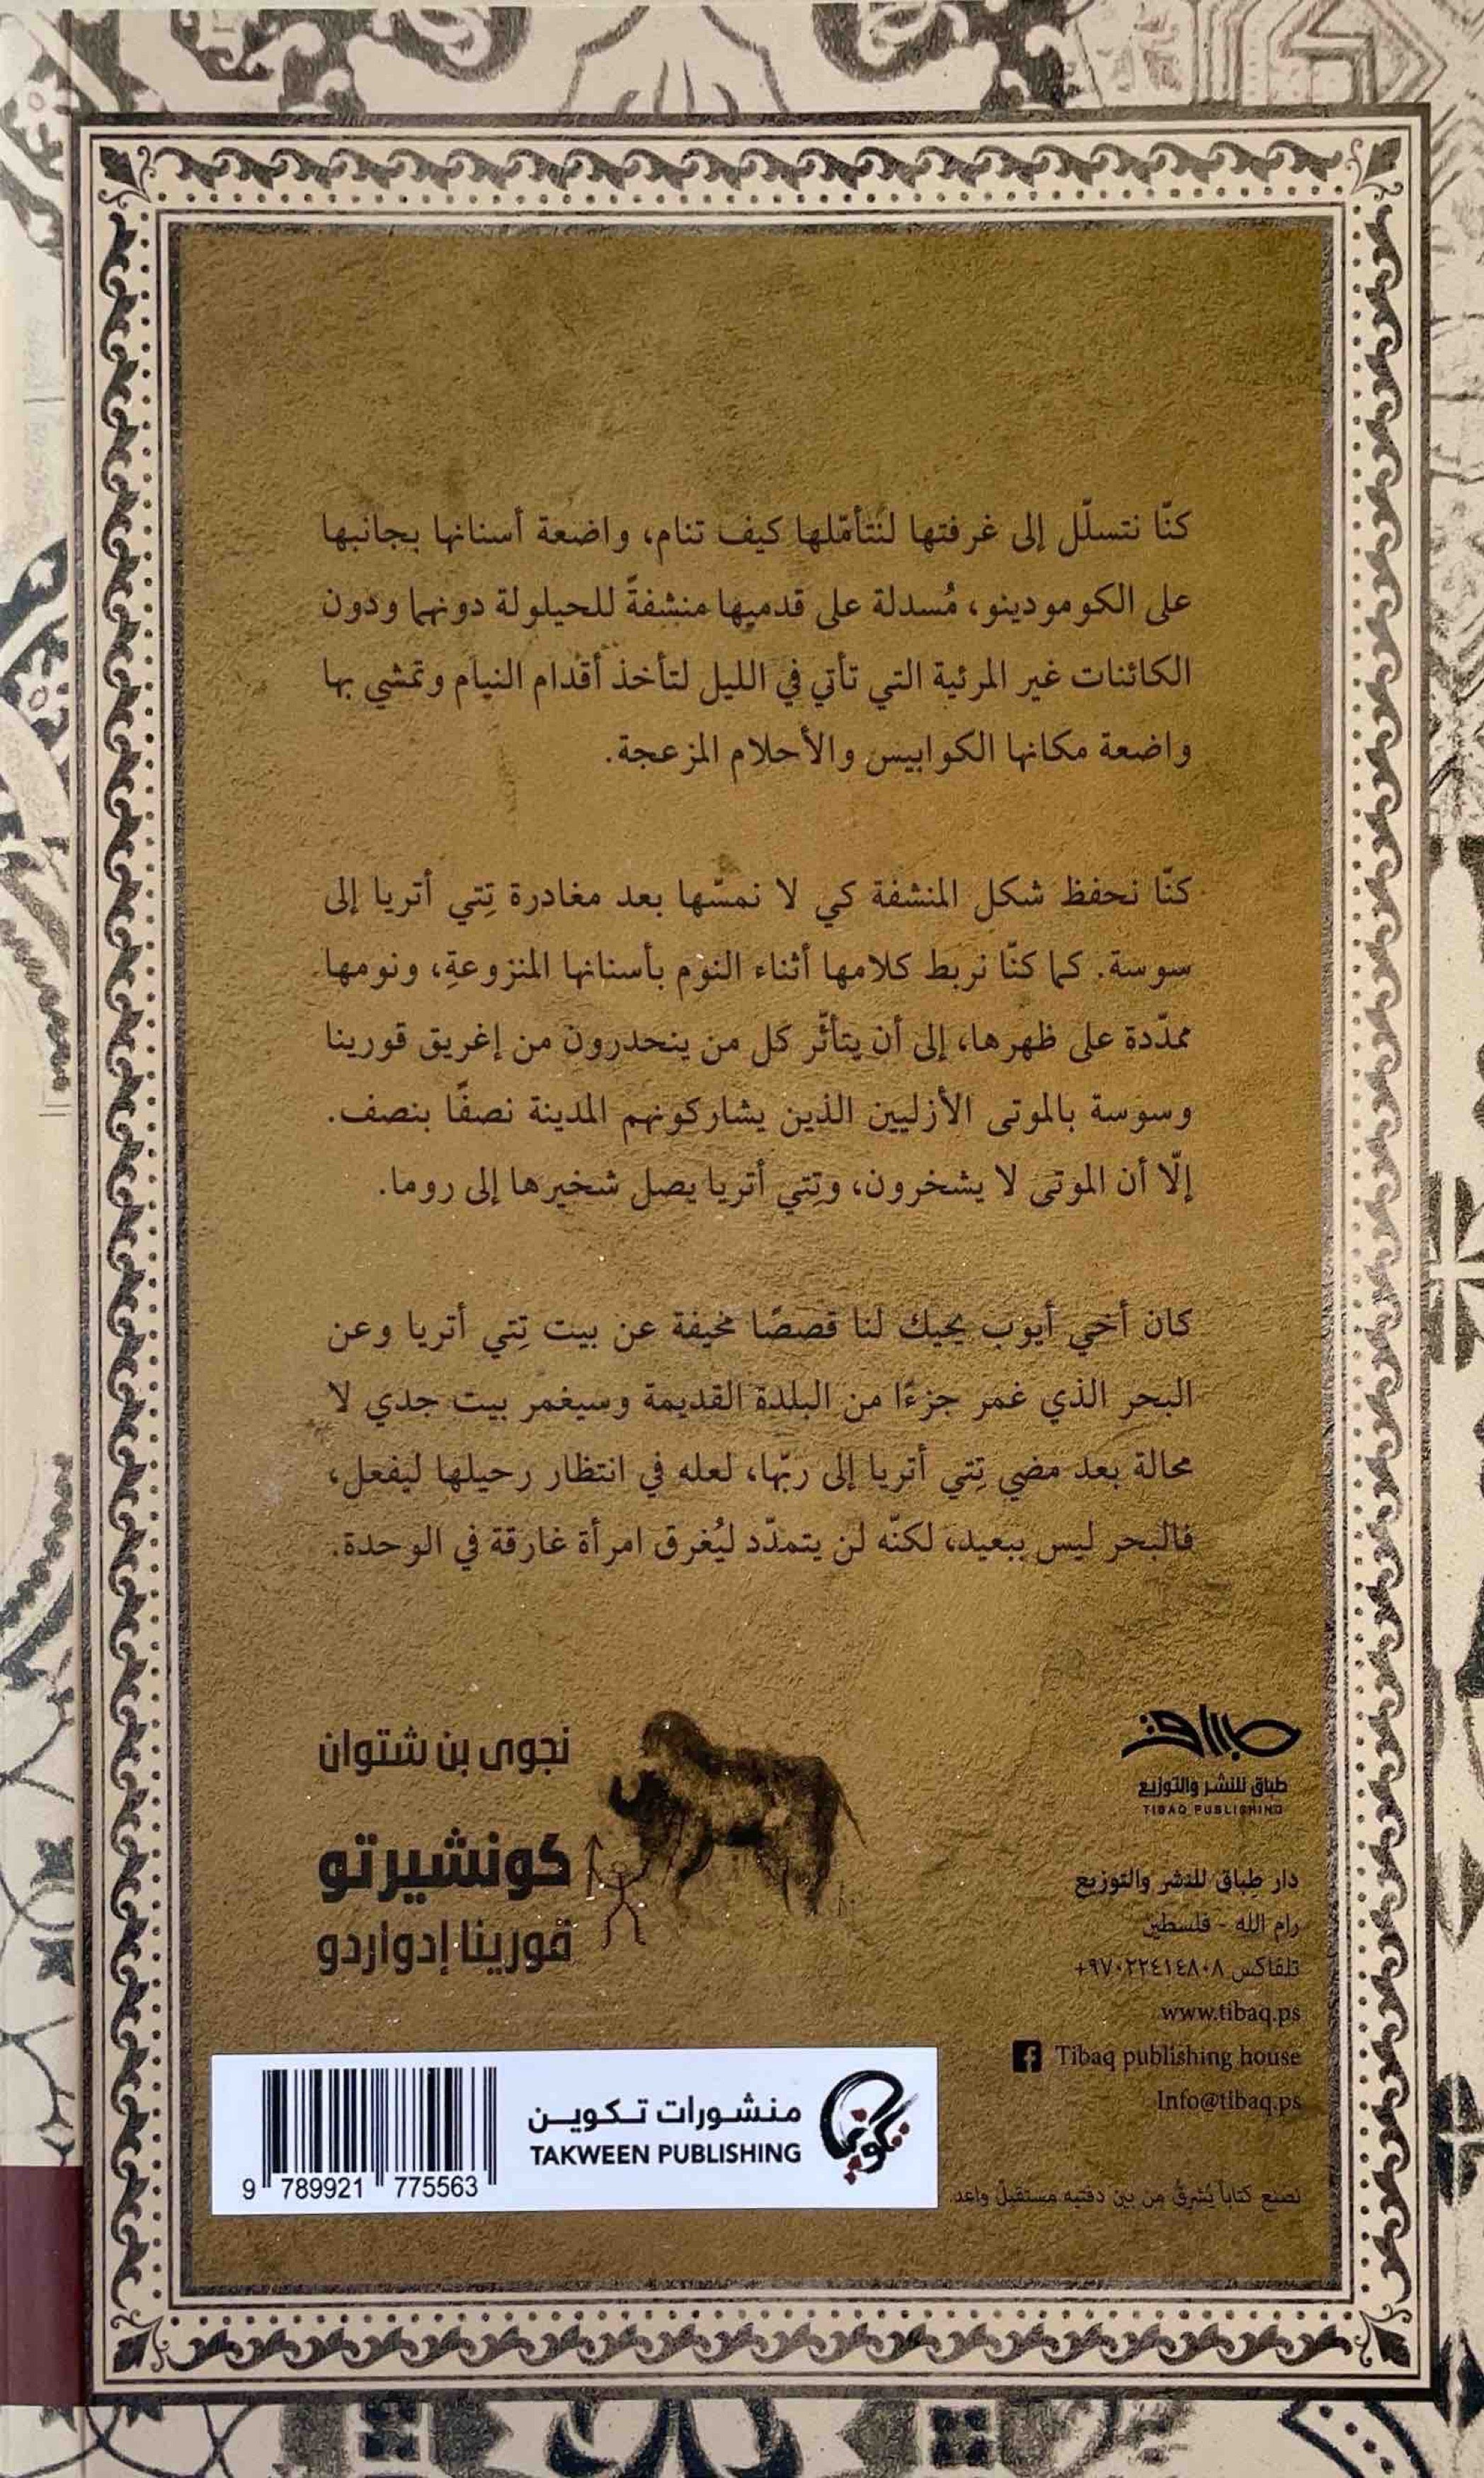 كنّا نتسلّل إلى غرفتها لنتأمّلها كيف تنام، واضعة أسنانها بجانبها
على الكومودينو، مُسدلة على قدميها منشفةً للحيلولة دونهما ودون
الكائنات غير المرئية التي تأتي في الليل لتأخذ أقدام النيام وتمشي بها
واضعة مكانها الكوابيس والأحلام المزعجة.
كنّا نحفظ شكل المنشفة كي لا نمسّها بعد مغادرة تِتي أتريا إلى
سوسة. كما كنّا نربط كلامها أثناء النوم بأسنانها المنزوعةِ، ونومها
ممدّدة على ظهرها، إلى أن يتأثّر كل من ينحدرون من إغريق قورينا
وسوسة بالموتى الأزليين الذين يشاركونهم المدينة نصفًا بنصف.
إلّا أن الموتى لا يشخرون، وتِتي أتريا يصل شخيرها إلى روما.
كان أخي أيوب يحيك لنا قصصًا مخيفة عن بيت تِتي أتريا وعن
البحر الذي غمر جزءًا من البلدة القديمة وسيغمر بيت جدي لا
محالة بعد مضي تِتي أتريا إلى ربّها، لعله في انتظار رحيلها ليفعل،
فالبحر ليس ببعيد، لكنّه لن يتمدّد ليُغرق امرأة غارقة في الوحدة.
نجوى بن شتوان
كونشيرتو
قورينا إدواردو
طباق
طباق للنشر والتوزيع
TIBAQ PUBLISHING
دار طِباق للنشر والتوزيع
رام الله - فلسطين
تلفاكس ٩٧٠٢٢٤١٤٨٠٨+
www.tibaq.ps
Tibaq publishing house
Info@tibaq.ps
نصنع كتاباً يُشرقُ من بين دفتيه مستقبلٌ واعد
تكوين
منشورات تـكويـن
TAKWEEN PUBLISHING
9 789921 775563